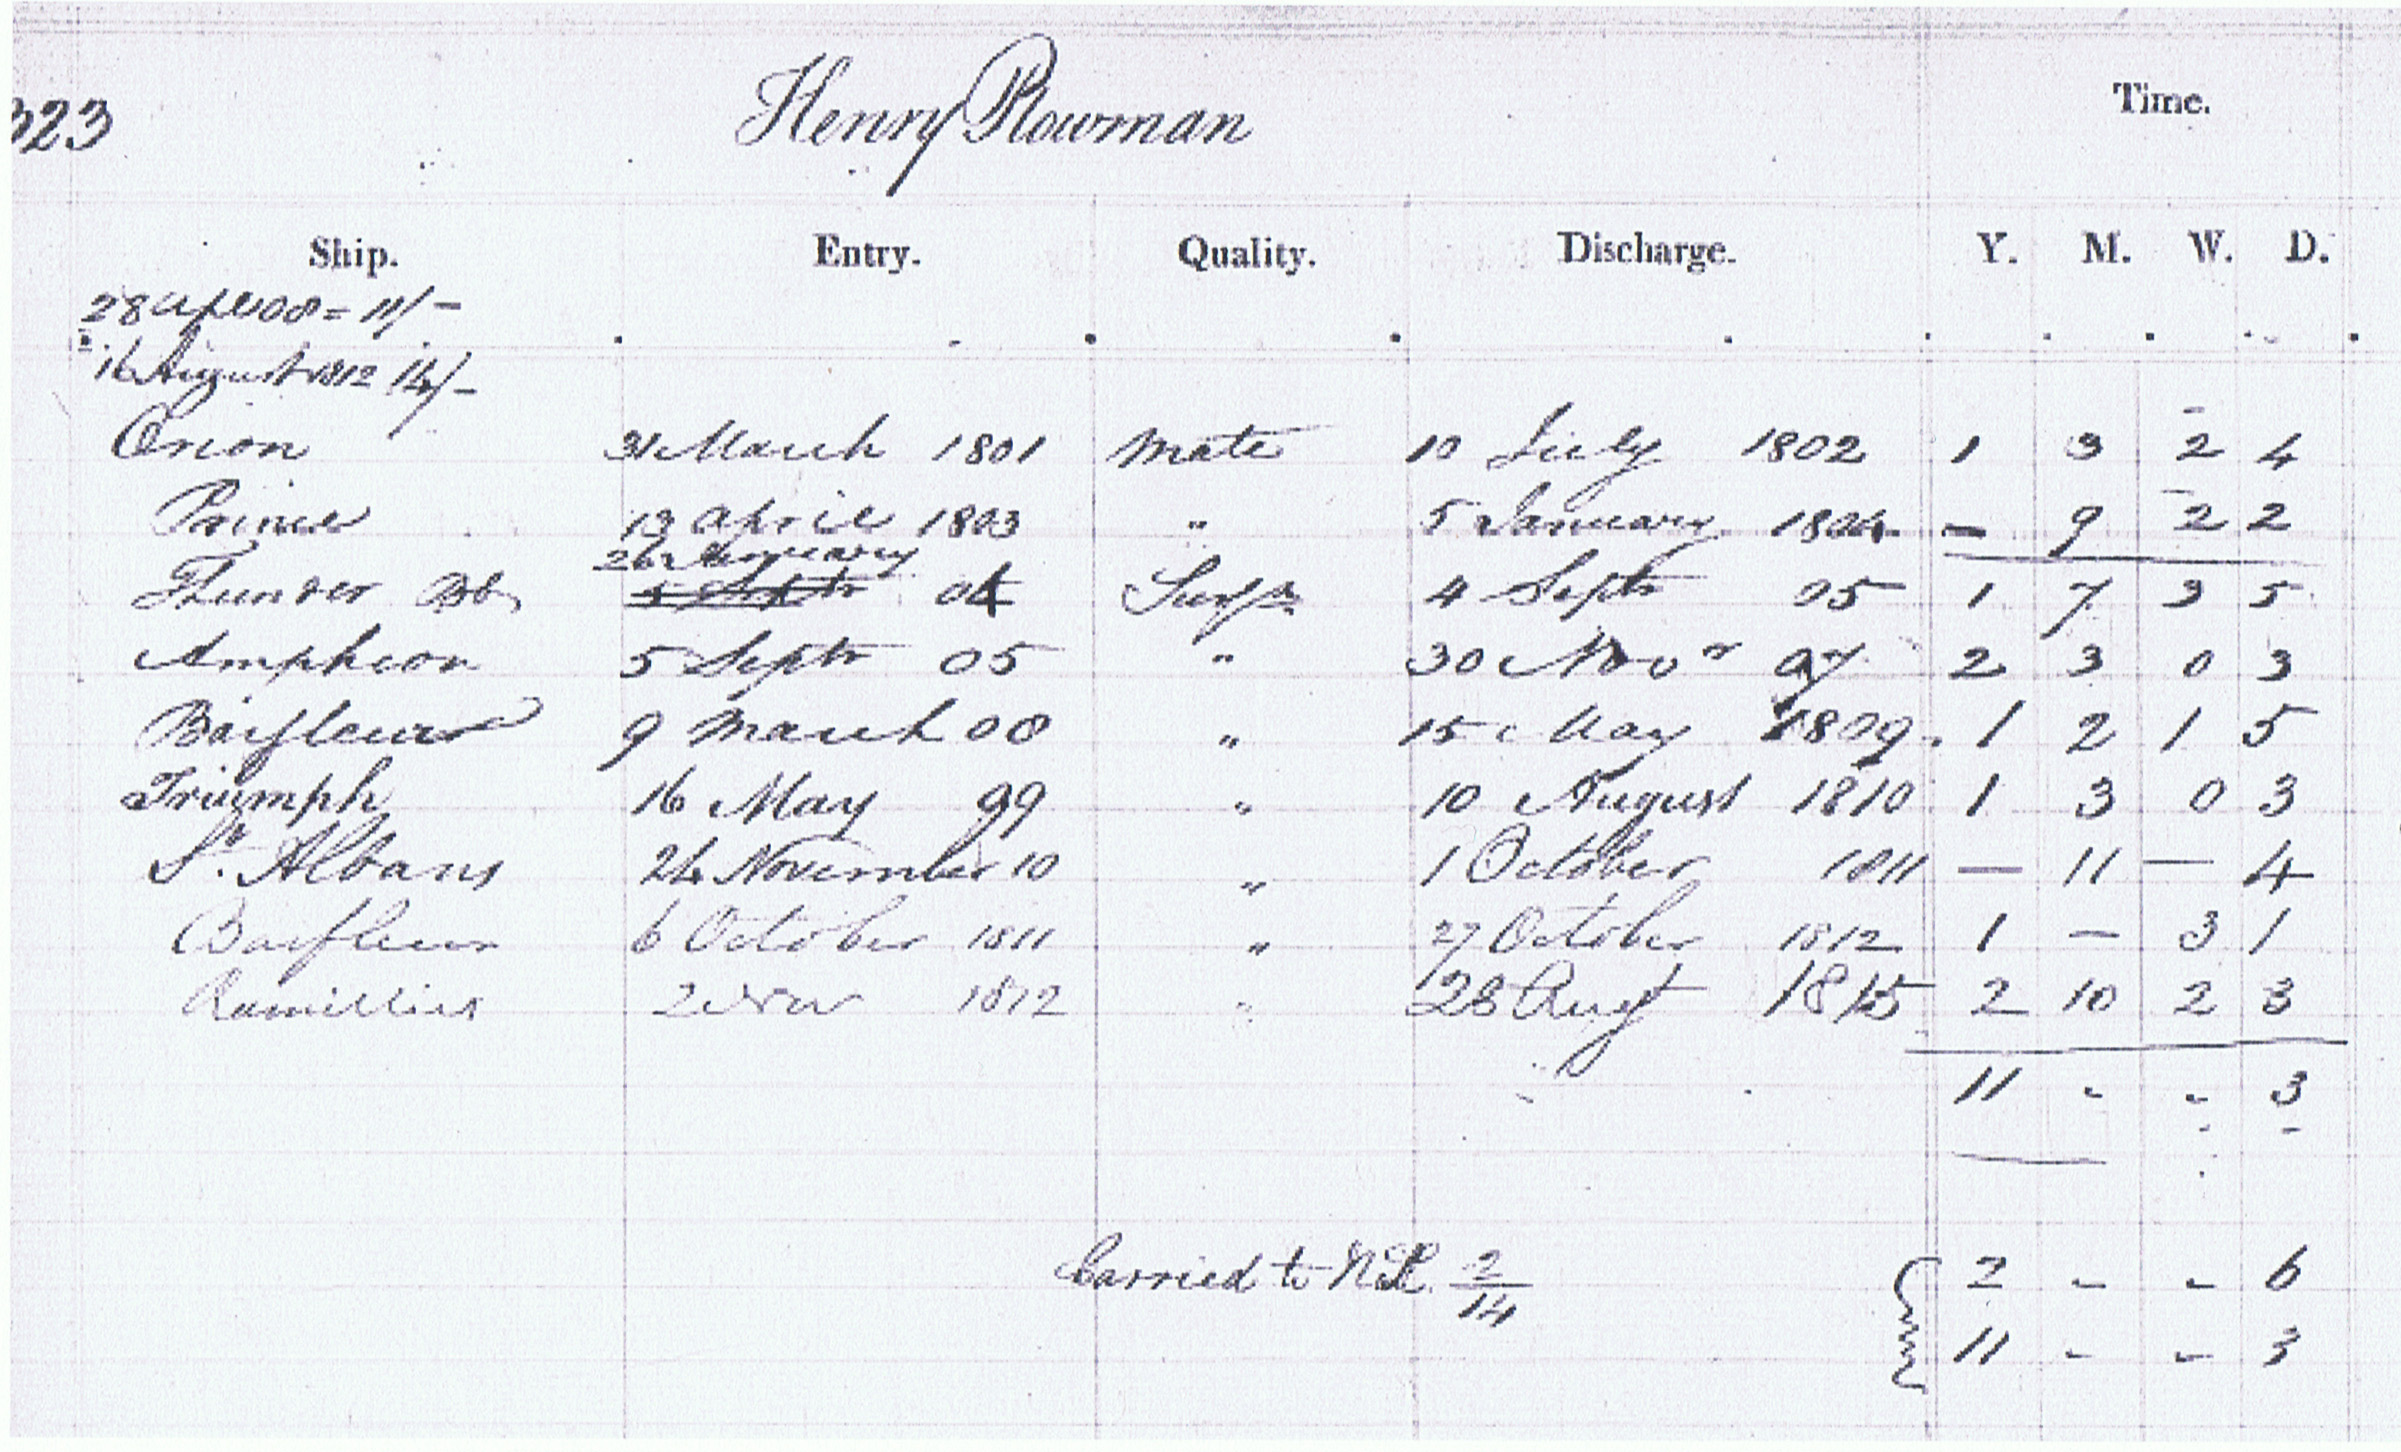 323 Henry Plowman Time.
Ship. Entry. Quality. Discharge. Y. M. W. D.
28 Apl 1808 = 11/-
16 August 1812 14/-
Orion 31 March 1801 Mate 10 July 1802 1 3 2 4
Prince 13 April 1803 " 5 January 1804 - 9 2 2
26 January
Thunder Bb 5 Septr 04 Surgn 4 Septr 05 1 7 3 5
Amphion 5 Septr 05 " 30 Novr 07 2 3 0 3
Barfleur 9 March 08 " 15 May 1809. 1 2 1 5
Triumph 16 May 09 " 10 August 1810 1 3 0 3
St. Albans 24 November 10 " 1 October 1811 — 11 — 4
Barfleur 6 October 1811 " 27 October 1812 1 - 3 1
Ramillies 2 Nov 1812 " 28 Augt 1815 2 10 2 3
11 - - 3
Carried to N.L. 2/14 2 - - 6
11 - - 3